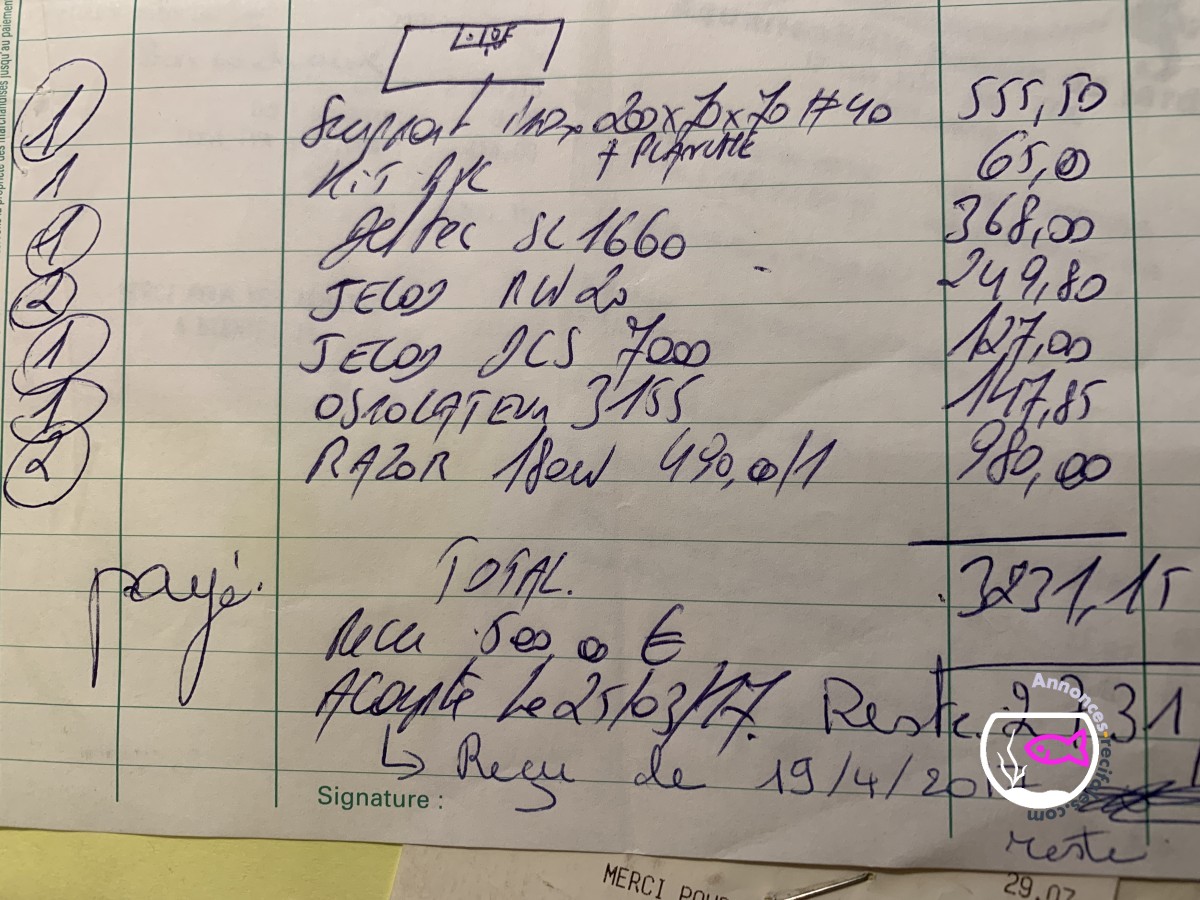 propriété des marchandises jusqu'au paiement
1 Support inox 200x70x70 #40 555,50
+ PLANCHE
1 KiT PVC 65,00
1 deltec SC 1660 368,00
2 JECOD RW 20 249,80
1 JECOD DCS 7000 127,00
1 OSMOLATEUR 3155 147,85
2 RAZOR 180W 490,00/1 980,00
payé. TOTAL. 3231,15
Recu 500,00 €
Acompte Le 25/03/17. Reste
↳ Reçu de 19/4/20
Signature :
reste
MERCI
29.07
Annonces-recifales.com